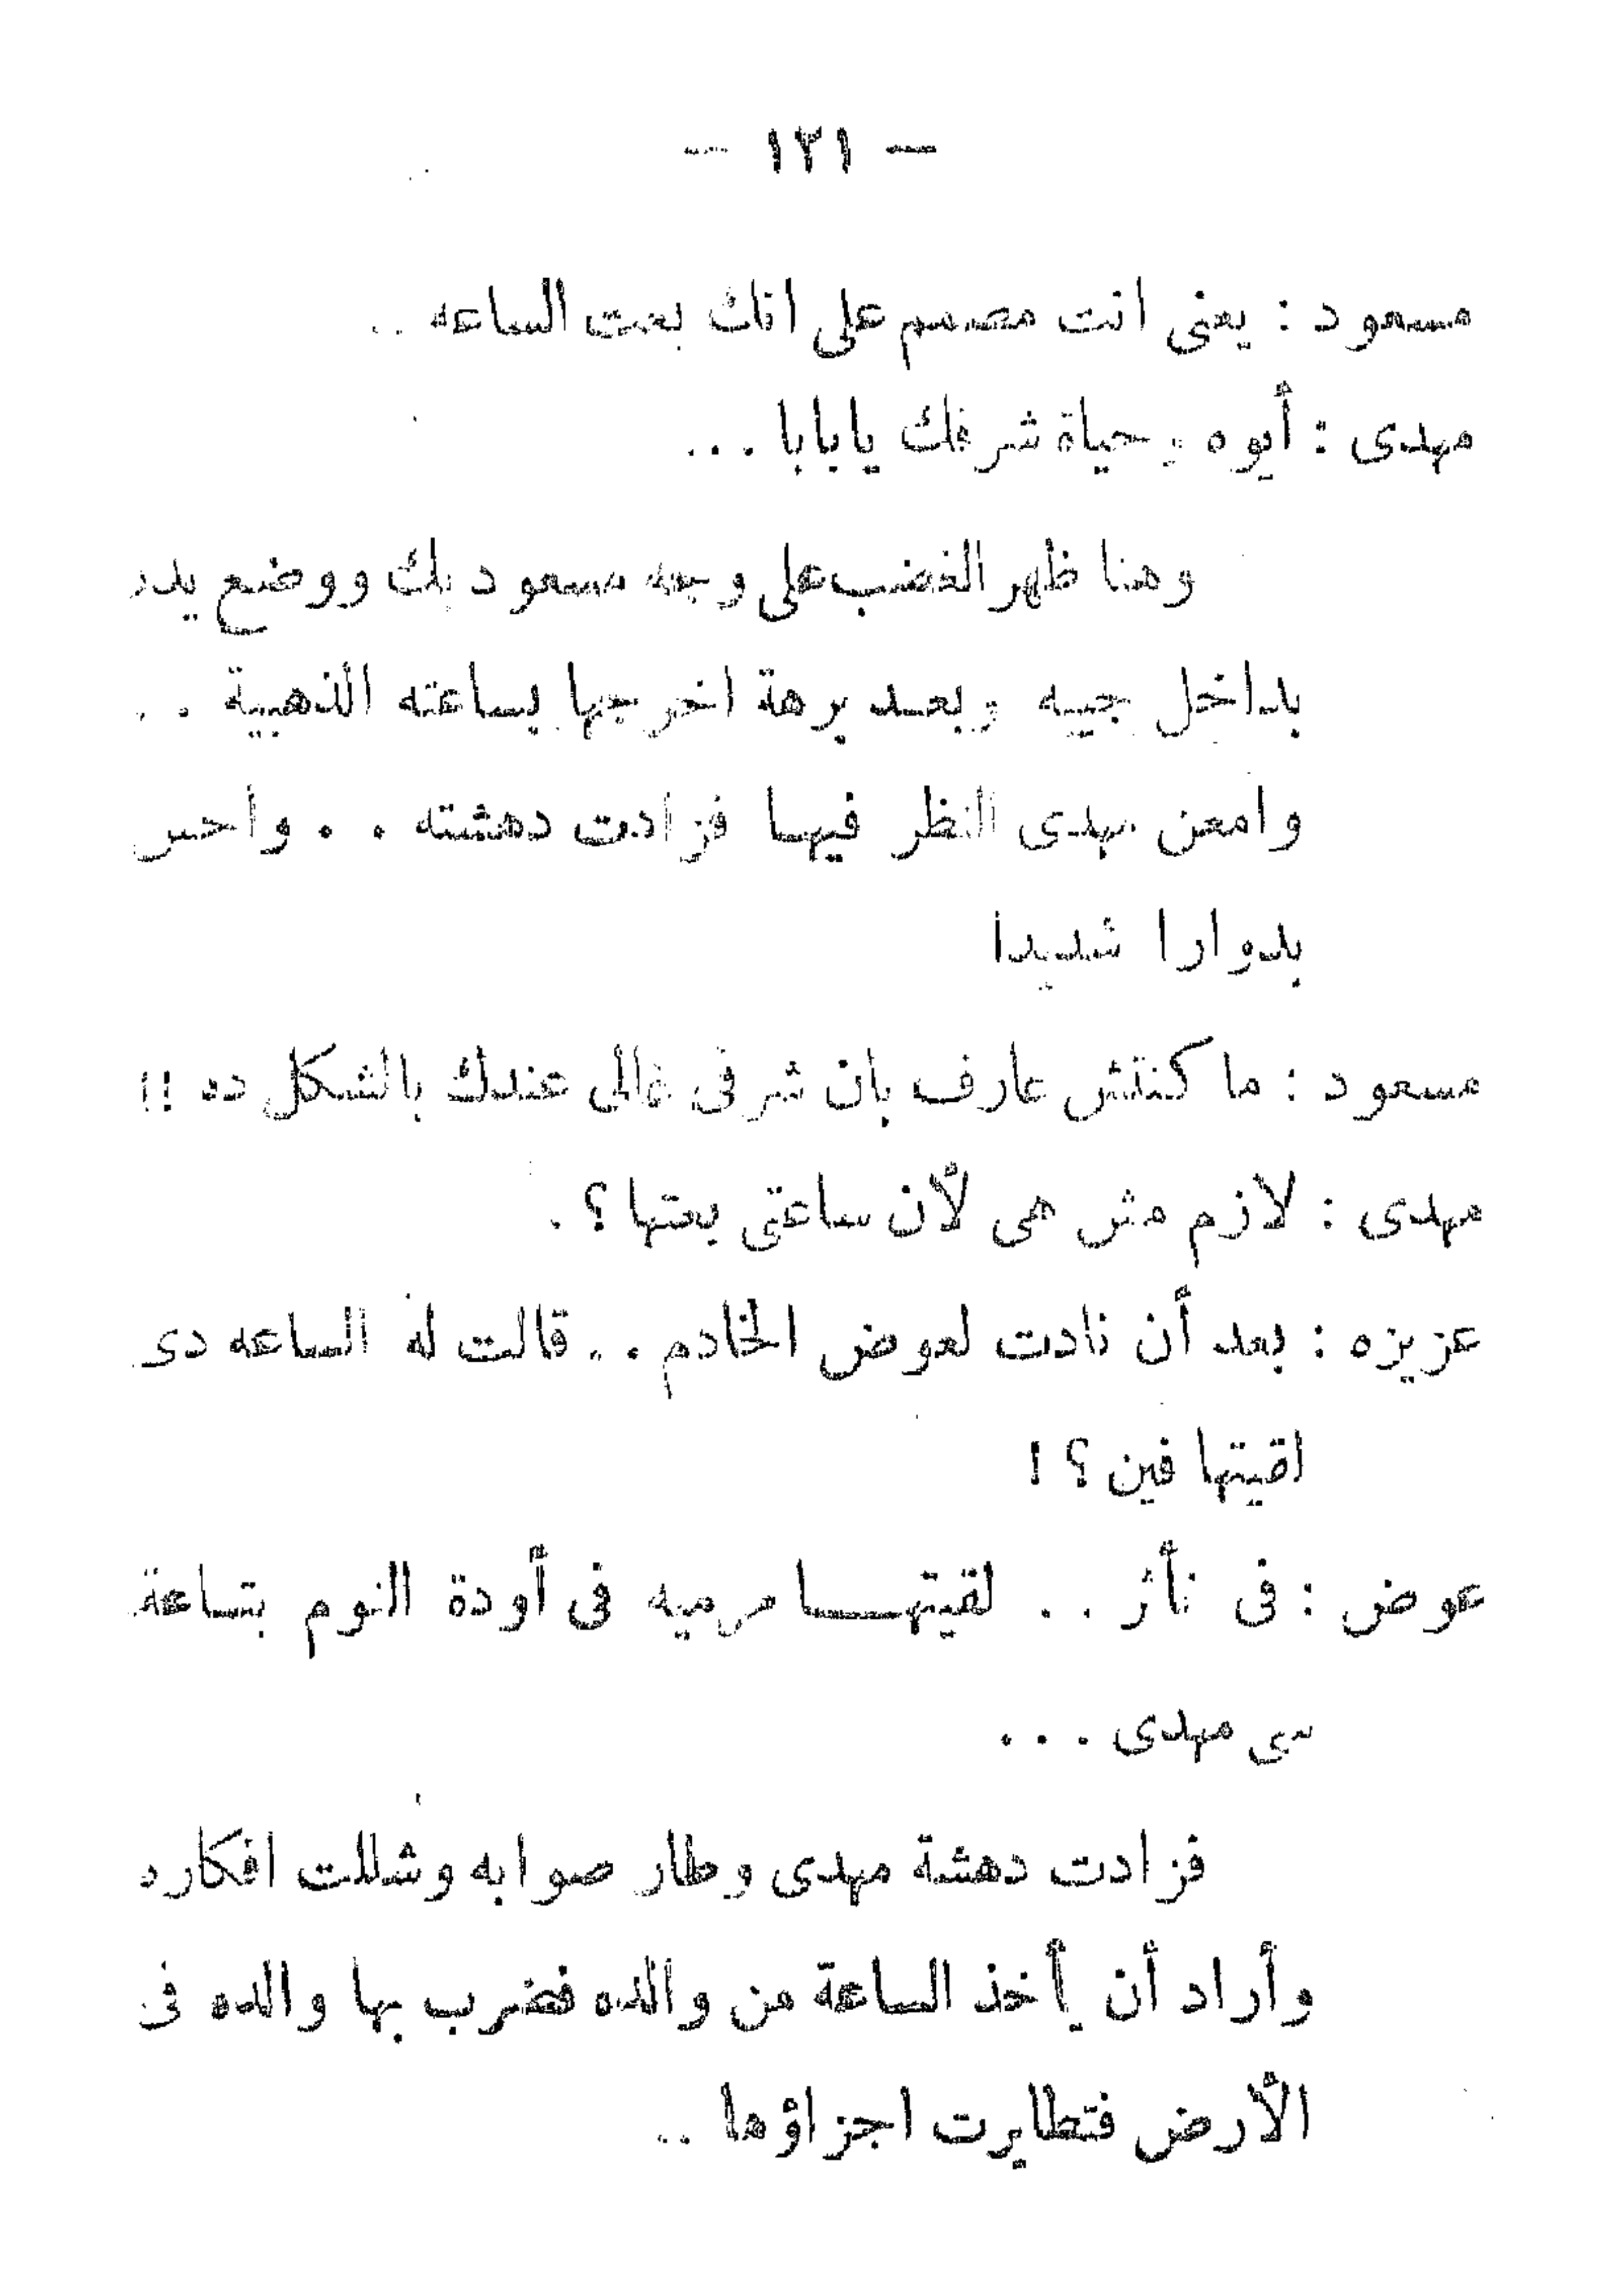 — ١٢١ —
مسعود : يعنى انت مصمم على انك بعت الساعه ..
مهدى : أيوه وحياة شرفك يابابا ...
وهنا ظهر الغضب على وجه مسعود بك ووضع يده
بداخل جيبه وبعد برهة اخرجها بساعته الذهبية ..
وامعن مهدى النظر فيها فزادت دهشته .. واحس
بدوارا شديدا
مسعود : ما كنتش عارف بان شرفى غالى عندك بالشكل ده !!
مهدى : لازم مش هى لأن ساعتى بعتها ؟ .
عزيزه : بعد أن نادت لعوض الخادم .. قالت له الساعه دى
لقيتها فين ؟ !
عوض : فى نأثر .. لقيتها مرميه فى أودة النوم بتاعة
سى مهدى ...
فزادت دهشة مهدى وطار صوابه وشللت افكاره
وأراد أن يأخذ الساعة من والده فضرب بها والده فى
الأرض فتطايرت اجزاؤها ..